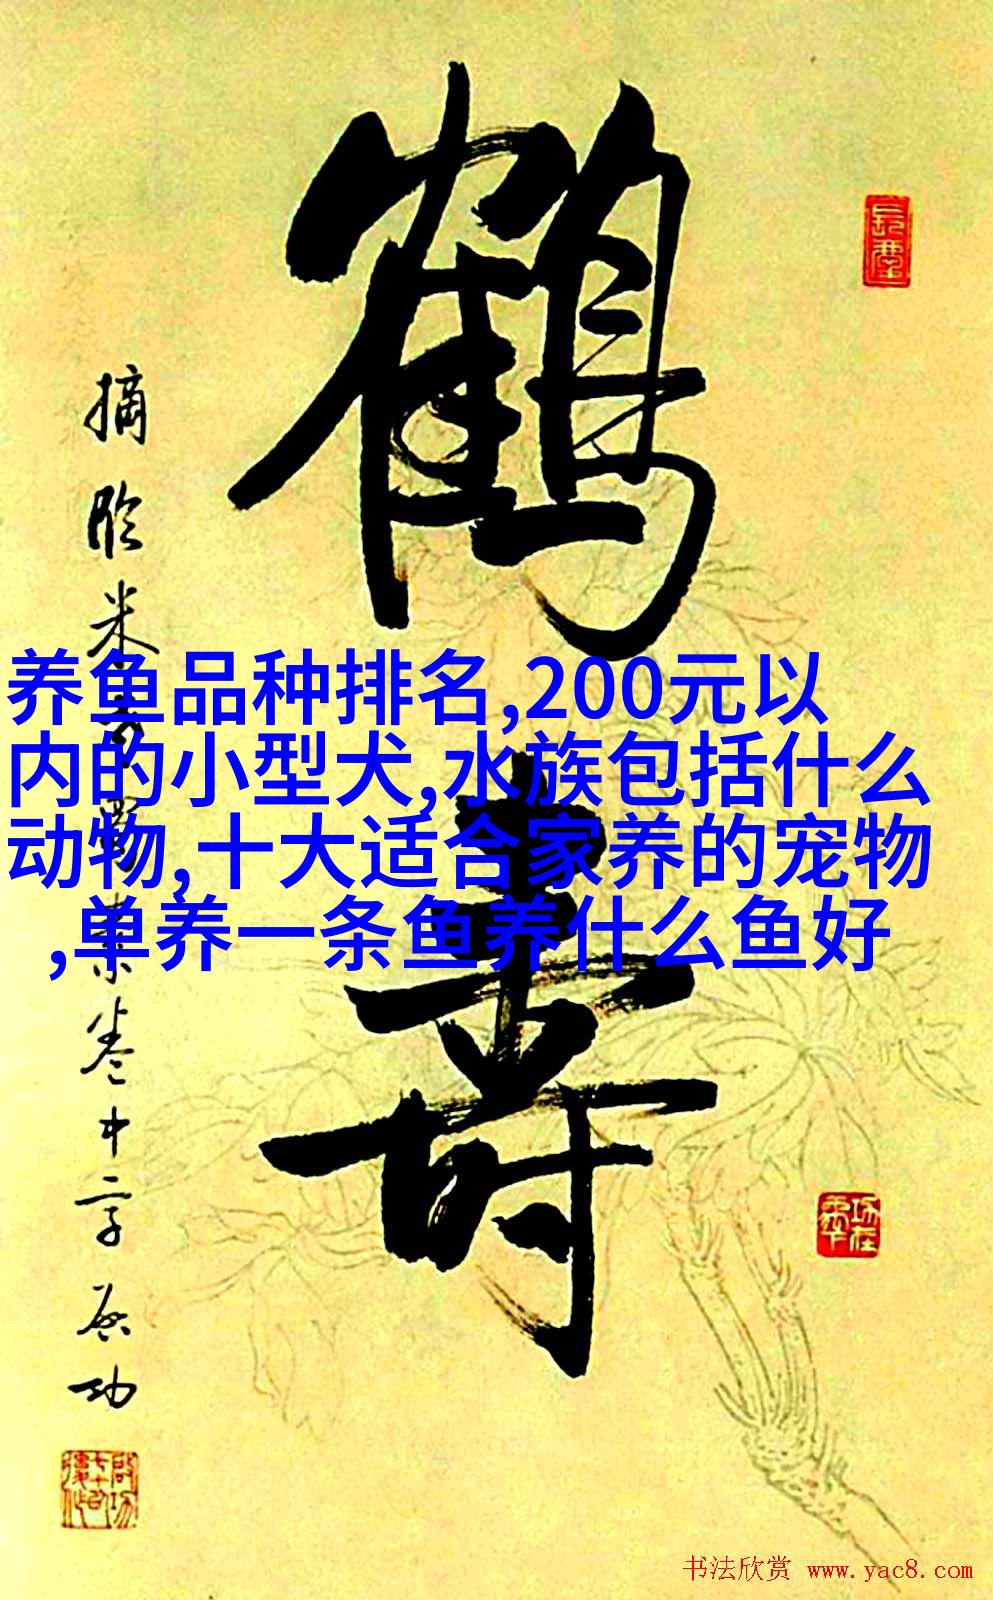 鹤
寿
养鱼品种排名,200元以
内的小型犬,水族包括什么
动物,十大适合家养的宠物
,单养一条鱼养什么鱼好
摘临米书蜀素卷中字 启功
书法欣赏 www.yac8.com